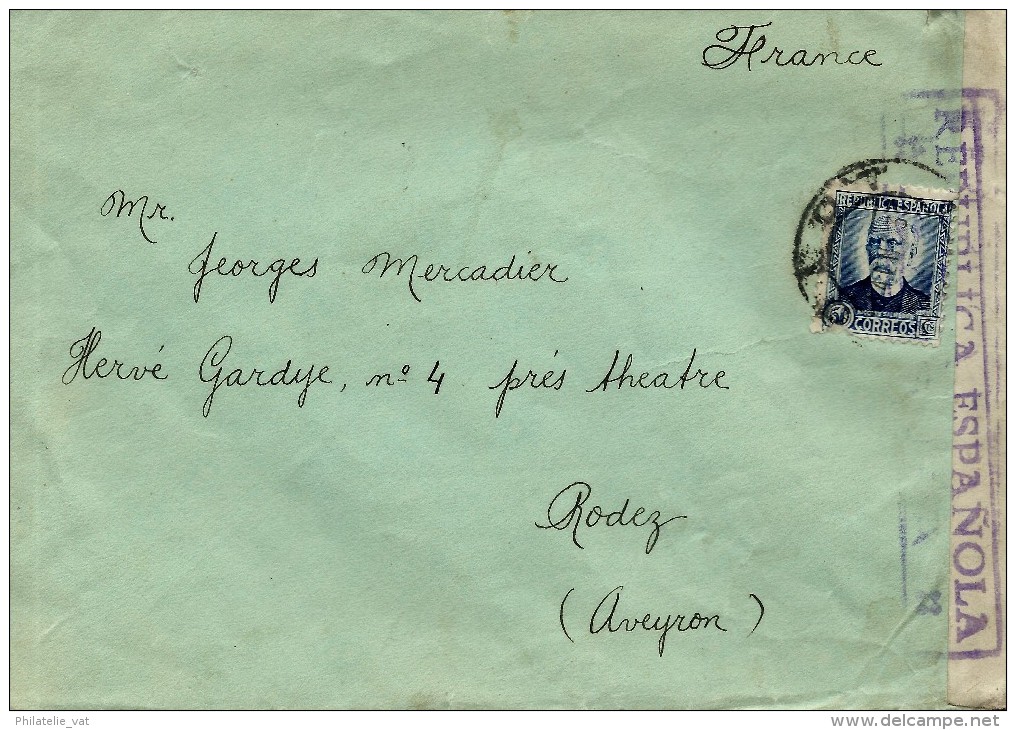 France
Mr.
Georges Mercadier
Hervé Gardye, nº 4 prés theatre
Rodez
(Aveyron)
REPUBLICA ESPAÑOLA
CORREOS
REPUBLICA ESPAÑOLA
Philatelie_vat
www.delcampe.net